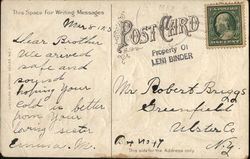 This Space For Writing Messages
POST CARD
Property Of
LENI BINDER
Dear Brother
we arived
safe and
sound
hoping your
cold is better
from your
loving sister
Emma. M.
Mr Robert Briggs
Greenfield
Ulster Co
N.Y.
Box No 47
This side for the Address only